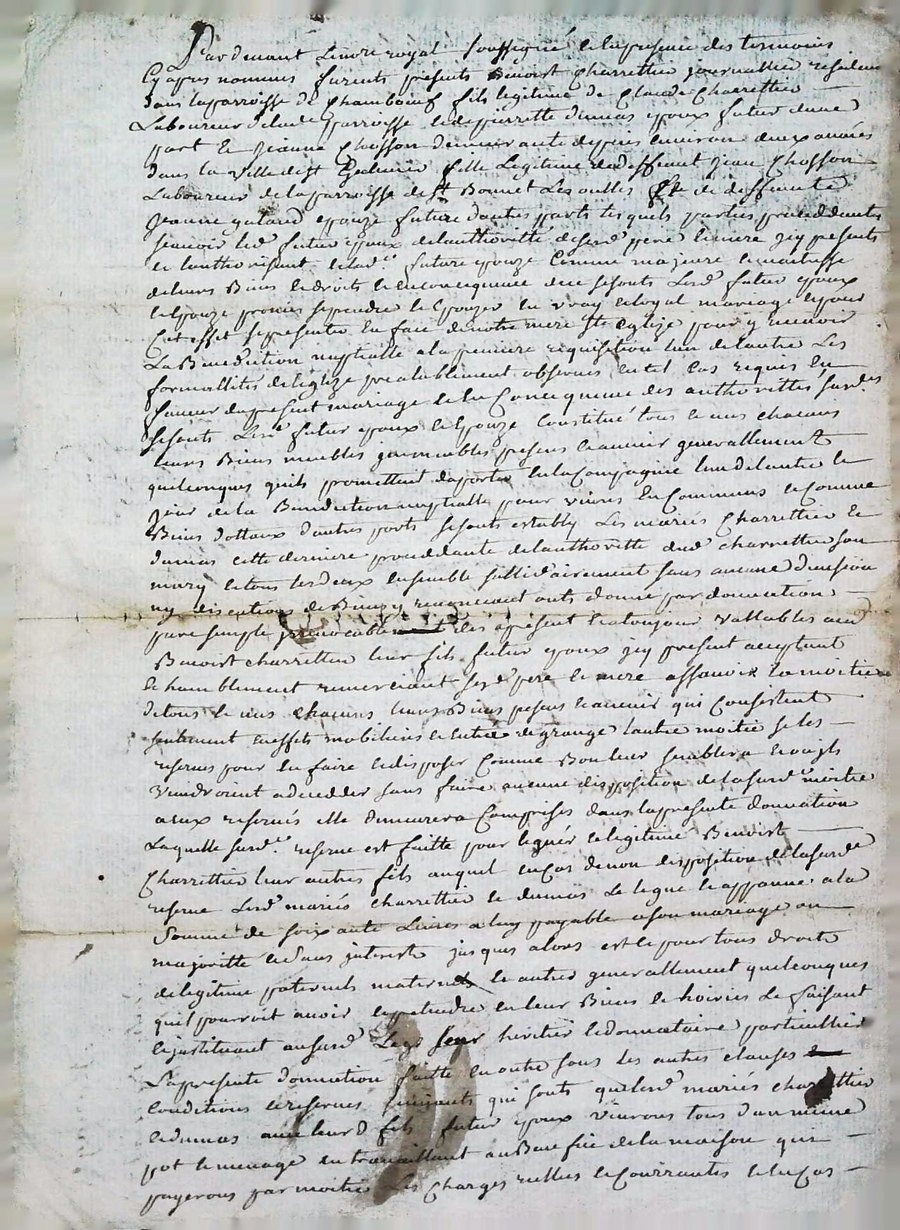 Pardevant le no.re royal soussigné et en presence des temoins
cy apres nommes furents presents Benoist Charrettier journallier residant
dans la parroisse de Chambœuf fils legitime de Claude Charrettier
Laboureur de lad.e parroisse et de pierrette dumas epoux futur d'une
part et Jeanne Chosson demeurante depuis environ deux années
dans la ville de st Galmier fille Legitime de deffunt Jean Chosson
Laboureur de la parroisse de st Bonnet Les oulles et de deffunte
Jeanne epouze future d'autres parts lesquels parties proceddantes
scavoir led futur epoux de lauthoritté de sesd pere et mere icy presents
et lauthorisant et lad.e future epouze comme majeure et maitresse
de leurs Biens et droits et en consequance de ce se sonts Lesd futur epoux
et epouze promis se prendre et Epouzer en vray et loyal mariage et pour
cet effet se presenter en face de notre mere Ste eglize pour y recevoir
La Benediction nuptialle a la premiere requisition lun de lautre Les
formallites de leglize prealablement observées en tel cas requis En
faveur du present mariage et en Consequence des authorittés susdes
se sonts Lesd futur epoux et Epouze Constitué tous et uns chacuns
leurs Biens meubles immeubles presens et avenir generallement
quelconques quils promettent d'aporter en la Compagnie lun de lautre le
jour de la Benediction nuptialle pour vivre En Communs et Comme
Biens dottaux d'autres parts se sonts establÿ Les mariés Charrettier et
dumas cette derniere proceddante de lauthoritté dud charrettier son
mary et tous les deux ensemble sollidairement sans aucune division
ny discution de Biens y renonceant onts donné par donnation
pure simple irrevocablement des apresent et a toujour vallables aud
Benoist charrettier leur fils futur epoux icy present acceptant
et humblement remerciant sesd pere et mere assavoir la moitié
de tous et uns chacuns leurs Biens presens et avenir qui Consistent
seulement en effets mobiliers et entrée de grange lautre moitié se les
reservés pour en faire et disposer Comme Bon leur semblera et ou ils
viendroient a decedder sans faire aucune disposition de la surd.e moitié
a eux reservée elle demeurera Comprises dans la presente donnation
Laquelle surd.e reserve est faitte pour leguer et legitimer Benoist
Charrettier leur autres fils auquel en cas de non disposition de la surd.e
reserve Lesd mariés charrettier et dumas Le legue et appanne a la
Somme de soixante Livres a luy payable a son mariage ou
majoritté et sans interests jusques alors et ce pour tous droits
de legitime paternels maternels et autres generallement quelconques
quil pourroit avoir et pretendre en leur Biens et hoiries Le faisant
et instituant au surd Legs leur heritier et donnataire particullier
La presente donnation faitte en outre sous les autres clauses
Conditions et reserves suivants qui sonts quelesd mariés charrettier
et dumas avec leurd fils futur epoux vivrons tous d'un même
pot et menage en travaillant au Beneffice de la maison qui
payerons par moitié Les Charges reelles et Courrantes et en Cas